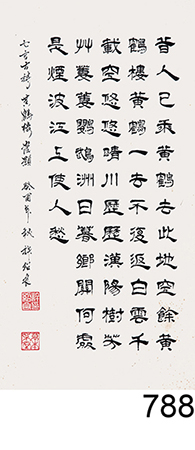 昔人已乘黃鶴去此地空餘黃
鶴樓黃鶴一去不復返白雲千
載空悠悠晴川歷歷漢陽樹芳
艸萋萋鸚鵡洲日暮鄉關何處
是煙波江上使人愁
七言古詩 黃鶴樓 崔顥 癸酉年
788